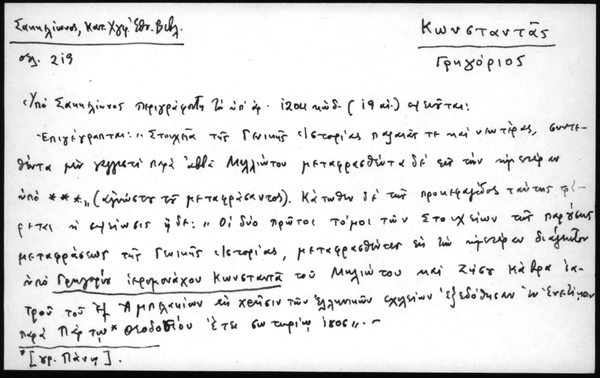 Σακκελίωνος, Κατ. Χγρ. Ἐθν. Βιβλ.
σελ. 219
Κωνσταντᾶς
Γρηγόριος
Ὑπὸ Σακκελίωνος περιγράφοντος τὸν ὑπ' ἀρ. 1204 κώδ. (19 αἰ.) σημειοῦται:
Ἐπιγέγραπται: "Στοιχεῖα τῆς Γενικῆς Ἱστορίας παλαιᾶς τε καὶ νεωτέρας, συντε-
θέντα μὲν γαλλιστὶ παρὰ ἀββᾶ Μιλλιώτου μεταφρασθέντα δὲ εἰς τὴν ἡμετέραν
ὑπὸ ***" (ἀγνώστου τοῦ μεταφράσαντος). Κάτωθεν δὲ τῆς προκειμένης ταύτης φέ-
ρεται ἡ σημείωσις ἥδε: "Οἱ δύο πρῶτοι τόμοι τῶν Στοιχείων τῆς παρούσης
μεταφράσεως τῆς Γενικῆς Ἱστορίας, μεταφρασθέντες εἰς τὴν ἡμετέραν διάλεκτον
ὑπὸ Γρηγορίου ἱερομονάχου Κωνσταντᾶ τοῦ Μηλιώτου καὶ Ζήσου Κάβρα ἰα-
τροῦ τοῦ ἐξ Ἀμπελακίων εἰς χρῆσιν τῶν ἑλληνικῶν σχολείων ἐξεδόθησαν ἐν Ἐνετίῃσιν
παρὰ Πάρ τῳ* Θεοδοσίου ἔτει σωτηρίῳ 1806". -
*[γρ. Πάνῳ].